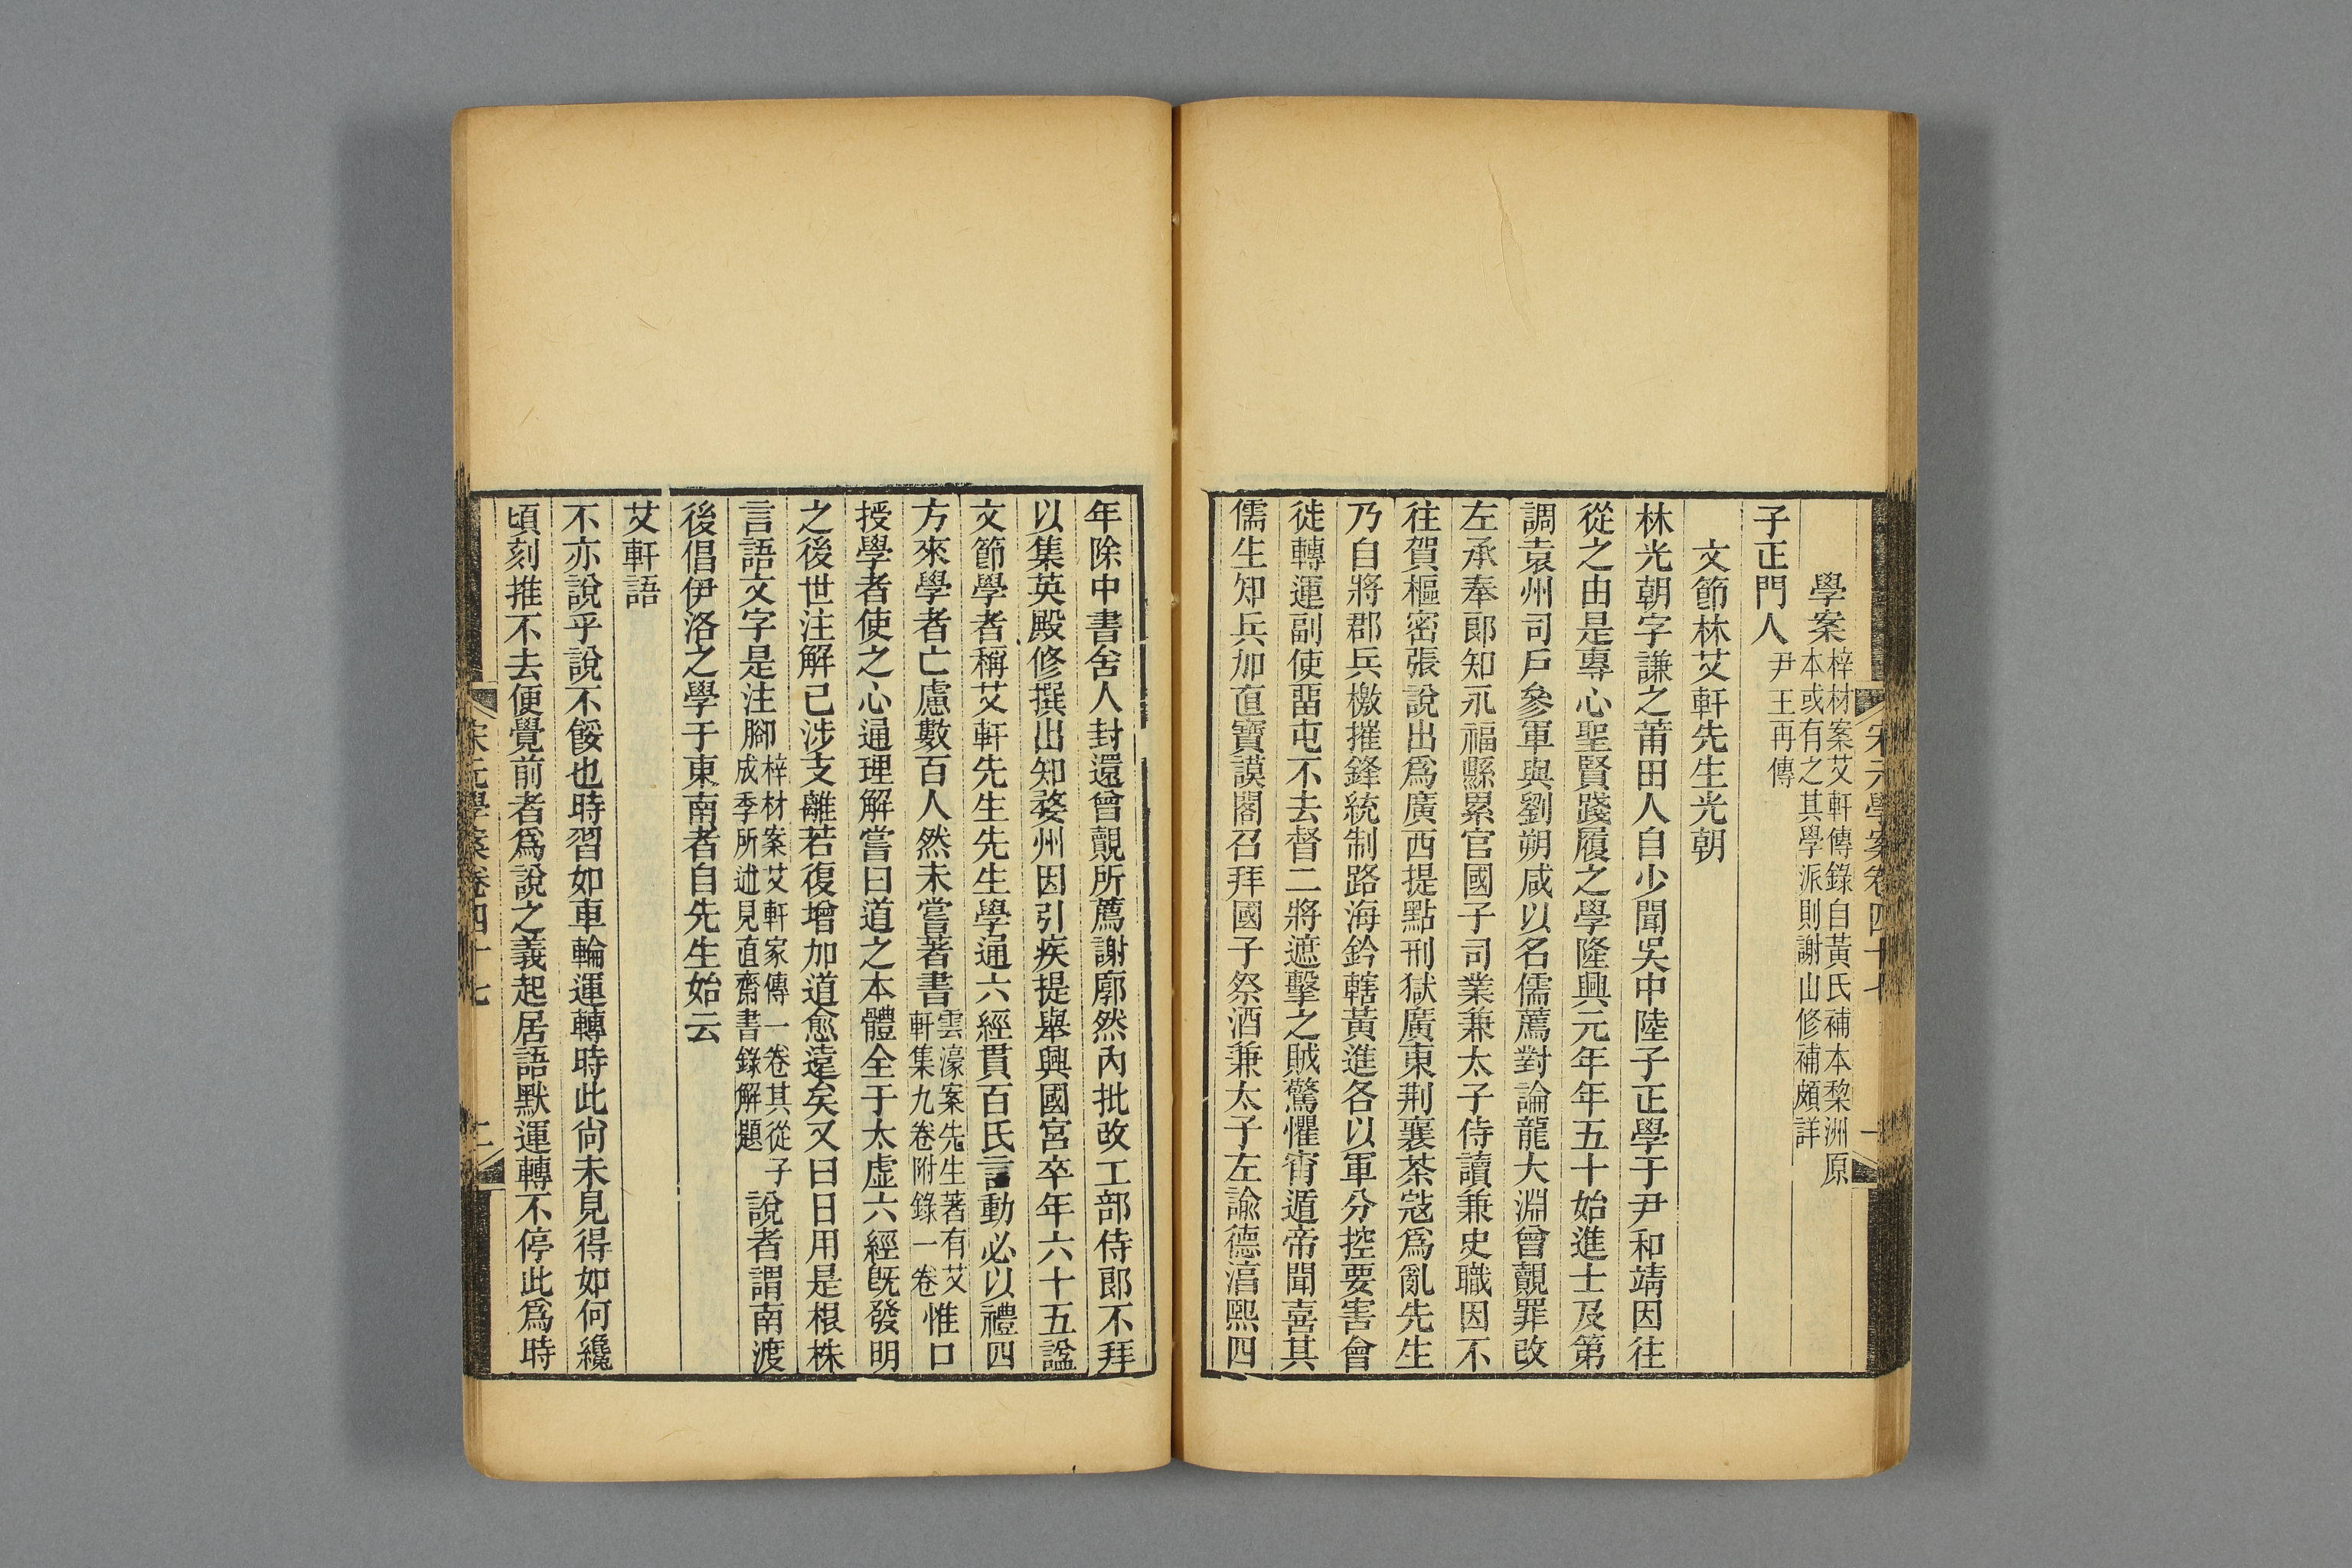 宋元學案卷四十七 一
學案梓材案艾軒傳錄自黃氏補本黎洲原
本或有之其學派則謝山修補頗詳
子正門人尹王再傳
文節林艾軒先生光朝
林光朝字謙之莆田人自少聞吳中陸子正學于尹和靖因往
從之由是專心聖賢踐履之學隆興元年年五十始進士及第
調袁州司戶參軍與劉朔咸以名儒薦對論龍大淵曾覿罪改
左承奉郎知永福縣累官國子司業兼太子侍讀兼史職因不
往賀樞密張說出爲廣西提點刑獄廣東荆襄茶寇爲亂先生
乃自將郡兵檄摧鋒統制路海鈐轄黃進各以軍分控要害會
徙轉運副使畱屯不去督二將遮擊之賊驚懼宵遁帝聞喜其
儒生知兵加直寶謨閣召拜國子祭酒兼太子左諭德淳熙四
年除中書舍人封還曾覿所薦謝廓然內批改工部侍郎不拜
以集英殿修撰出知婺州因引疾提舉興國宮卒年六十五諡
文節學者稱艾軒先生先生學通六經貫百氏言動必以禮四
方來學者亡慮數百人然未嘗著書雲濠案先生著有艾軒集九卷附錄一卷惟口
授學者使之心通理解嘗曰道之本體全于太虛六經旣發明
之後世注解已涉支離若復增加道愈遠矣又曰日用是根株
言語文字是注腳梓材案艾軒家傳一卷其從子成季所述見直齋書錄解題說者謂南渡
後倡伊洛之學于東南者自先生始云
艾軒語
不亦說乎說不餒也時習如車輪運轉時此尙未見得如何纔
頃刻推不去便覺前者爲說之義起居語默運轉不停此爲時
宋元學案卷四十七 二